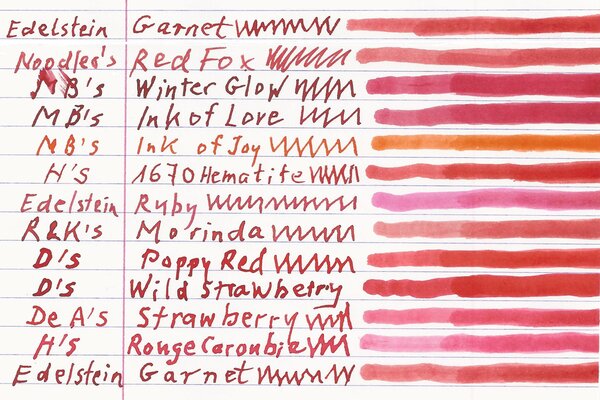 Edelstein Garnet
Noodler's Red Fox
MB's Winter Glow
MB's Ink of Love
MB's Ink of Joy
H's 1670 Hematite
Edelstein Ruby
R&K's Morinda
D's Poppy Red
D's Wild Strawberry
De A's Strawberry
H's Rouge Caroubie
Edelstein Garnet